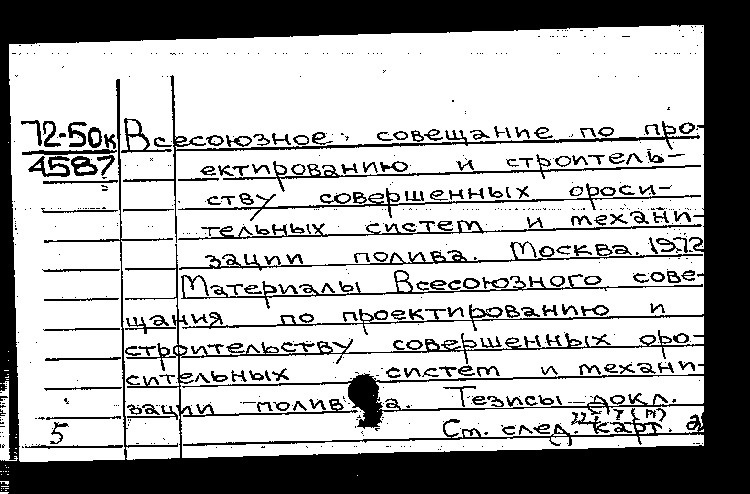 72-50к Всесоюзное совещание по про-
4587 ектированию и строитель-
ству совершенных ороси-
тельных систем и механи-
зации полива. Москва. 1972
Материалы Всесоюзного сове-
щания по проектированию и
строительству совершенных оро-
сительных систем и механи-
зации полива. Тезисы докл.
5 См. след. карт.